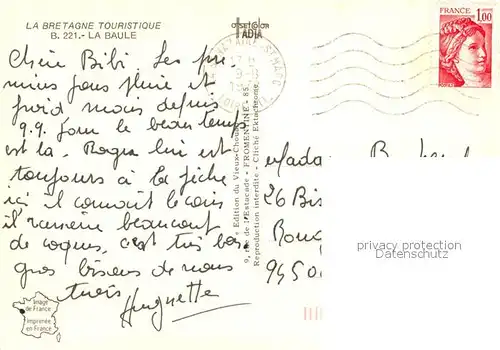 LA BRETAGNE TOURISTIQUE
B. 221.- LA BAULE
Chère Bibi. Les pre-
miers jours pluie et
froid mais depuis
9.9. jour le beau temps
est la. lui est
toujours à la pêche
ici il connait le coin
il ramène beaucoup
de coques, c'est très bon
gros bisous de nous
trois Huguette
Image
de France
Imprimée
en France
Edition du Vieux-Chouan
9, rue de l'Estacade - FROMENTINE - 85.
Reproduction interdite - Cliché Ektachrome
FRANCE
1,00
Madame
26 Bis
945
privacy protection
Datenschutz